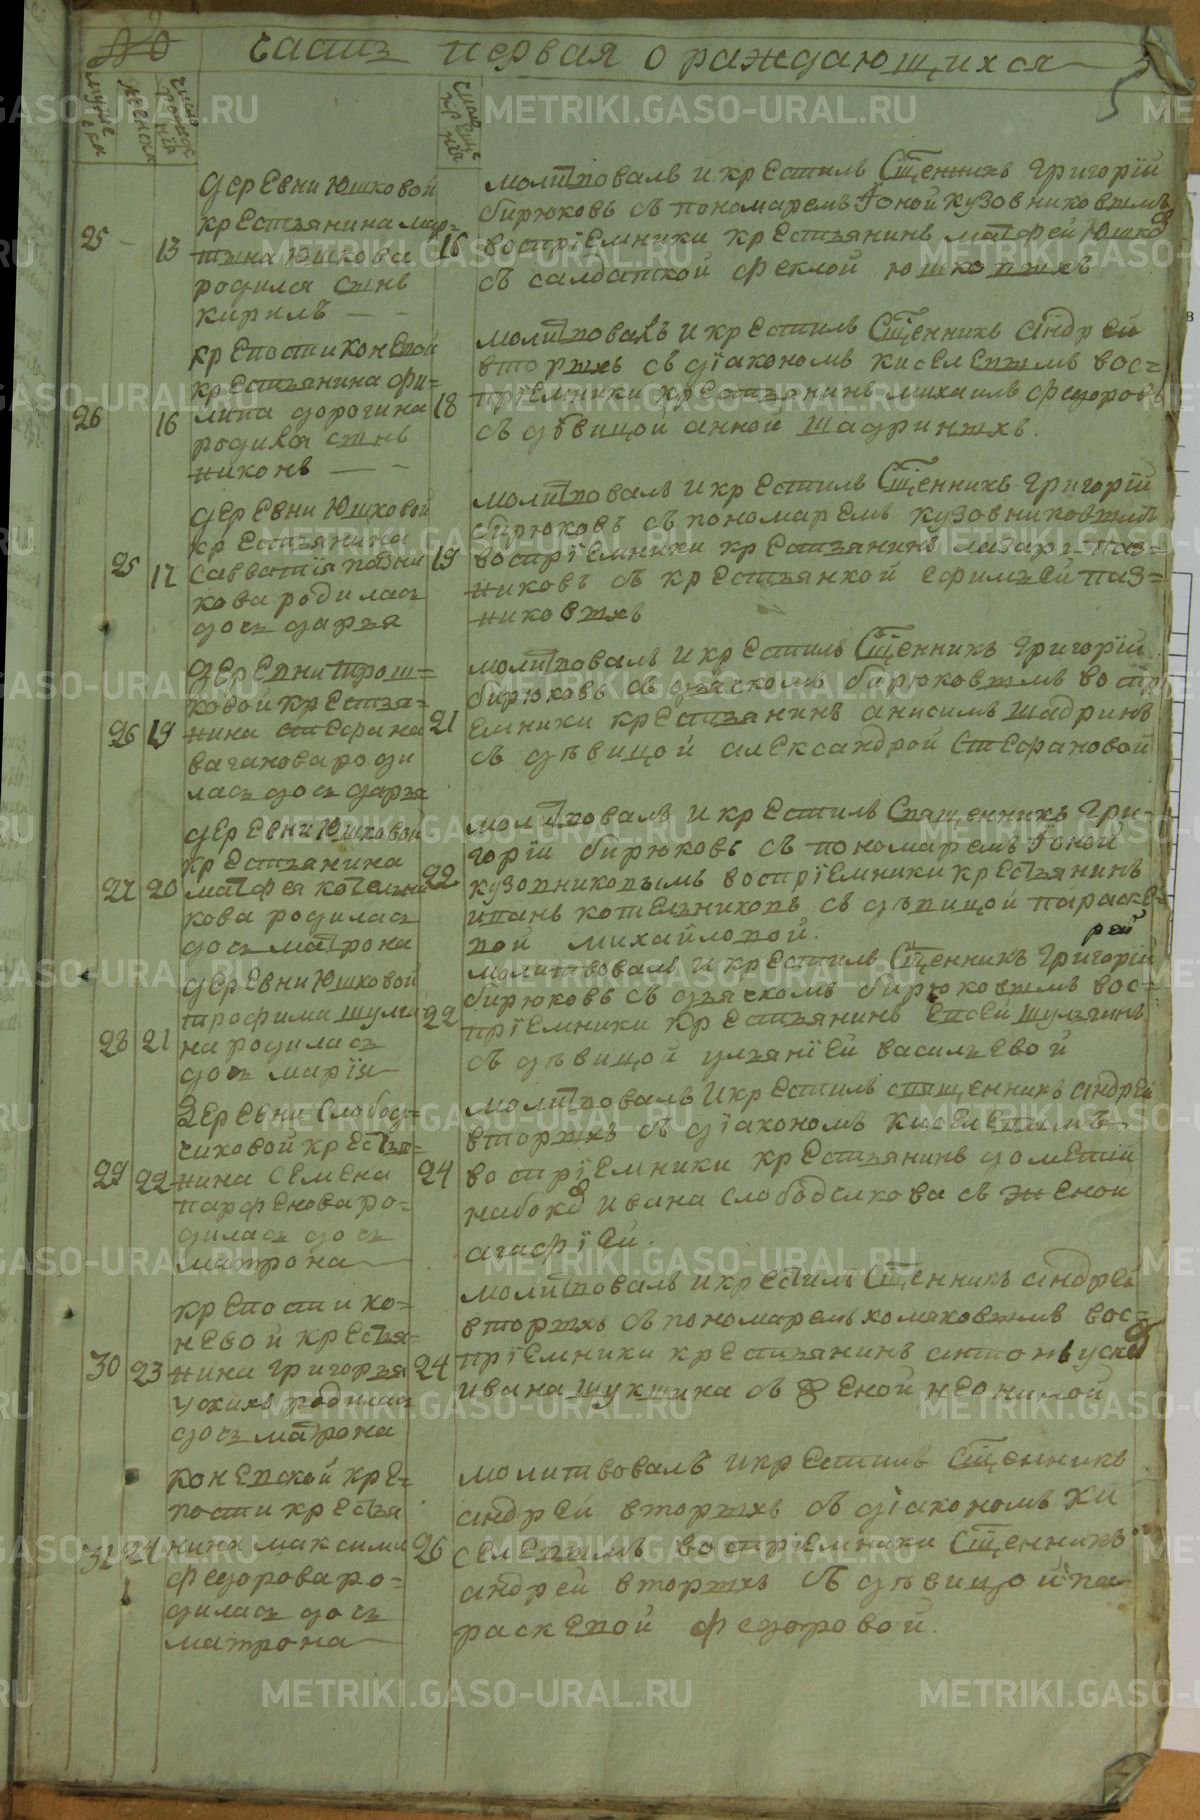 № часть первая о раждающихся
5
мужеска
женска
число рожденія
число крещенія
деревни Юшковой
крестьянина мар=
25 13 тына Юшкова
родился сынъ
кирилъ
16 молитвовалъ и крестилъ Сщенникъ Григорїй
бирюковъ съ пономаремъ Iоной кузовниковымъ
воспрїемники крестьянинъ матфей Юшко
съ салдаткой феклой юшковыхъ
крепости конѣвой
крестьянина фи=
26 16 липа дорогина
родился сынъ
никонъ
18 молитвовалъ и крестилъ Сщенникъ андрей
вторыхъ съ дїакономъ киселевымъ вос=
прїемники крестьянинъ михаилъ федоровъ
съ дѣвицой анной шадриныхъ.
деревни Юшковой
крестьянина
25 17 савватїя пазни
кова родилась
дочь дарья
19 молитвовалъ и крестилъ Сщенникъ Григорїй
бирюковъ съ пономаремъ кузовниковымъ
воспрїемники крестьянинъ лазарь паз=
никовъ съ крестьянкой ефимьей паз=
никовыхъ
деревни трош=
ковой крестья=
26 19 нина стефана
ваганова роди
лась дочь дарья
21 молитвовалъ и крестилъ Сщенникъ Григорїй
бирюковъ съ дьячкомъ бирюковымъ воспрї
емники крестьянинъ анисимъ шадринъ
съ дѣвицой александрой Стефановой
деревни Юшковой
крестьянина
27 20 матфея котельни
кова родилась
дочь матрона
22 молитвовалъ и крестилъ Священникъ Гри-
горїй бирюковъ съ пономаремъ Iоной
кузовниковымъ воспрїемники крестьянинъ
иванъ котельниковъ съ дѣвицой параске
вой михайловой.
деревни Юшковой
трофима шулги
28 21 на родилась
дочь марїя
22 молитвовалъ и крестилъ Сщенникъ Григорїй
бирюковъ съ дьячкомъ бирюковымъ вос=
прїемники крестьянинъ Евсей шульгинъ
съ дѣвицой ульянїей васильевой
Деревни Слобод=
чиковой крестья=
29 22 нина семена
парфенова ро=
дилась дочь
матрона
24 молитвовалъ и крестилъ священникъ андрей
вторыхъ съ дїакономъ киселевымъ
воспрїемники крестьянинъ дометїй
набоко ивана слободчикова съ женой
агафїей.
крепости ко=
невой крестья=
30 23 нина григорья
ускихъ родилась
дочь матрона
24 молитвовалъ и крестилъ Сщенникъ андрей
вторыхъ съ пономаремъ хомяковымъ вос=
прїемники крестьянинъ антонъ уско
ивана шукшина съ женой неонилой
конѣвской кре=
пости крестья
31 24 нина максима
федорова ро=
дилась дочь
матрона
26 молитвовалъ и крестилъ Сщенникъ
андрей вторыхъ съ дїакономъ ки
селевымъ воспрїемники Сщенникъ
андрей вторыхъ съ дѣвицой па
раскевой федоровой.
METRIKI.GASO-URAL.RU